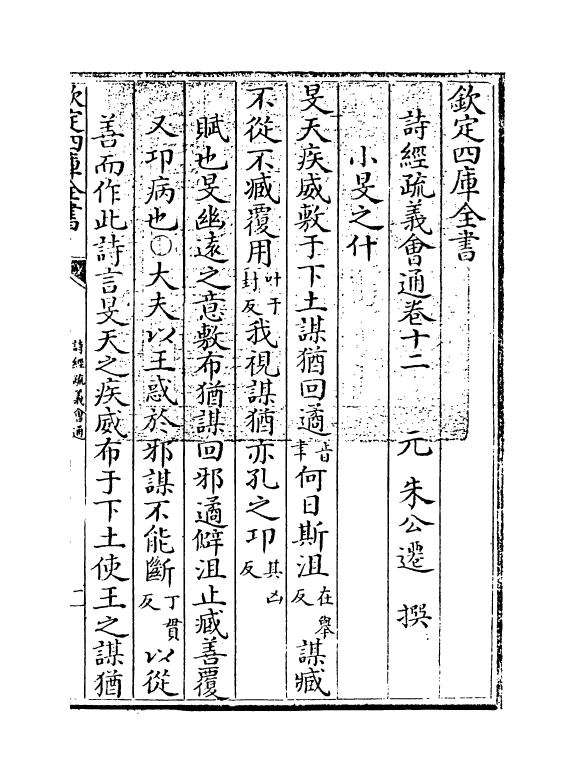 欽定四庫全書
詩經疏義會通卷十二　元　朱公遷　撰
小旻之什
旻天疾威敷于下土謀猶回遹音聿何日斯沮在舉反謀臧
不從不臧覆用叶于封反我視謀猶亦孔之卭其凶反
賦也旻幽遠之意敷布猶謀回邪遹僻沮止臧善覆
又卭病也○大夫以王惑於邪謀不能斷丁貫反以從
善而作此詩言旻天之疾威布于下土使王之謀猶
欽定四庫全書
詩經疏義會通
二